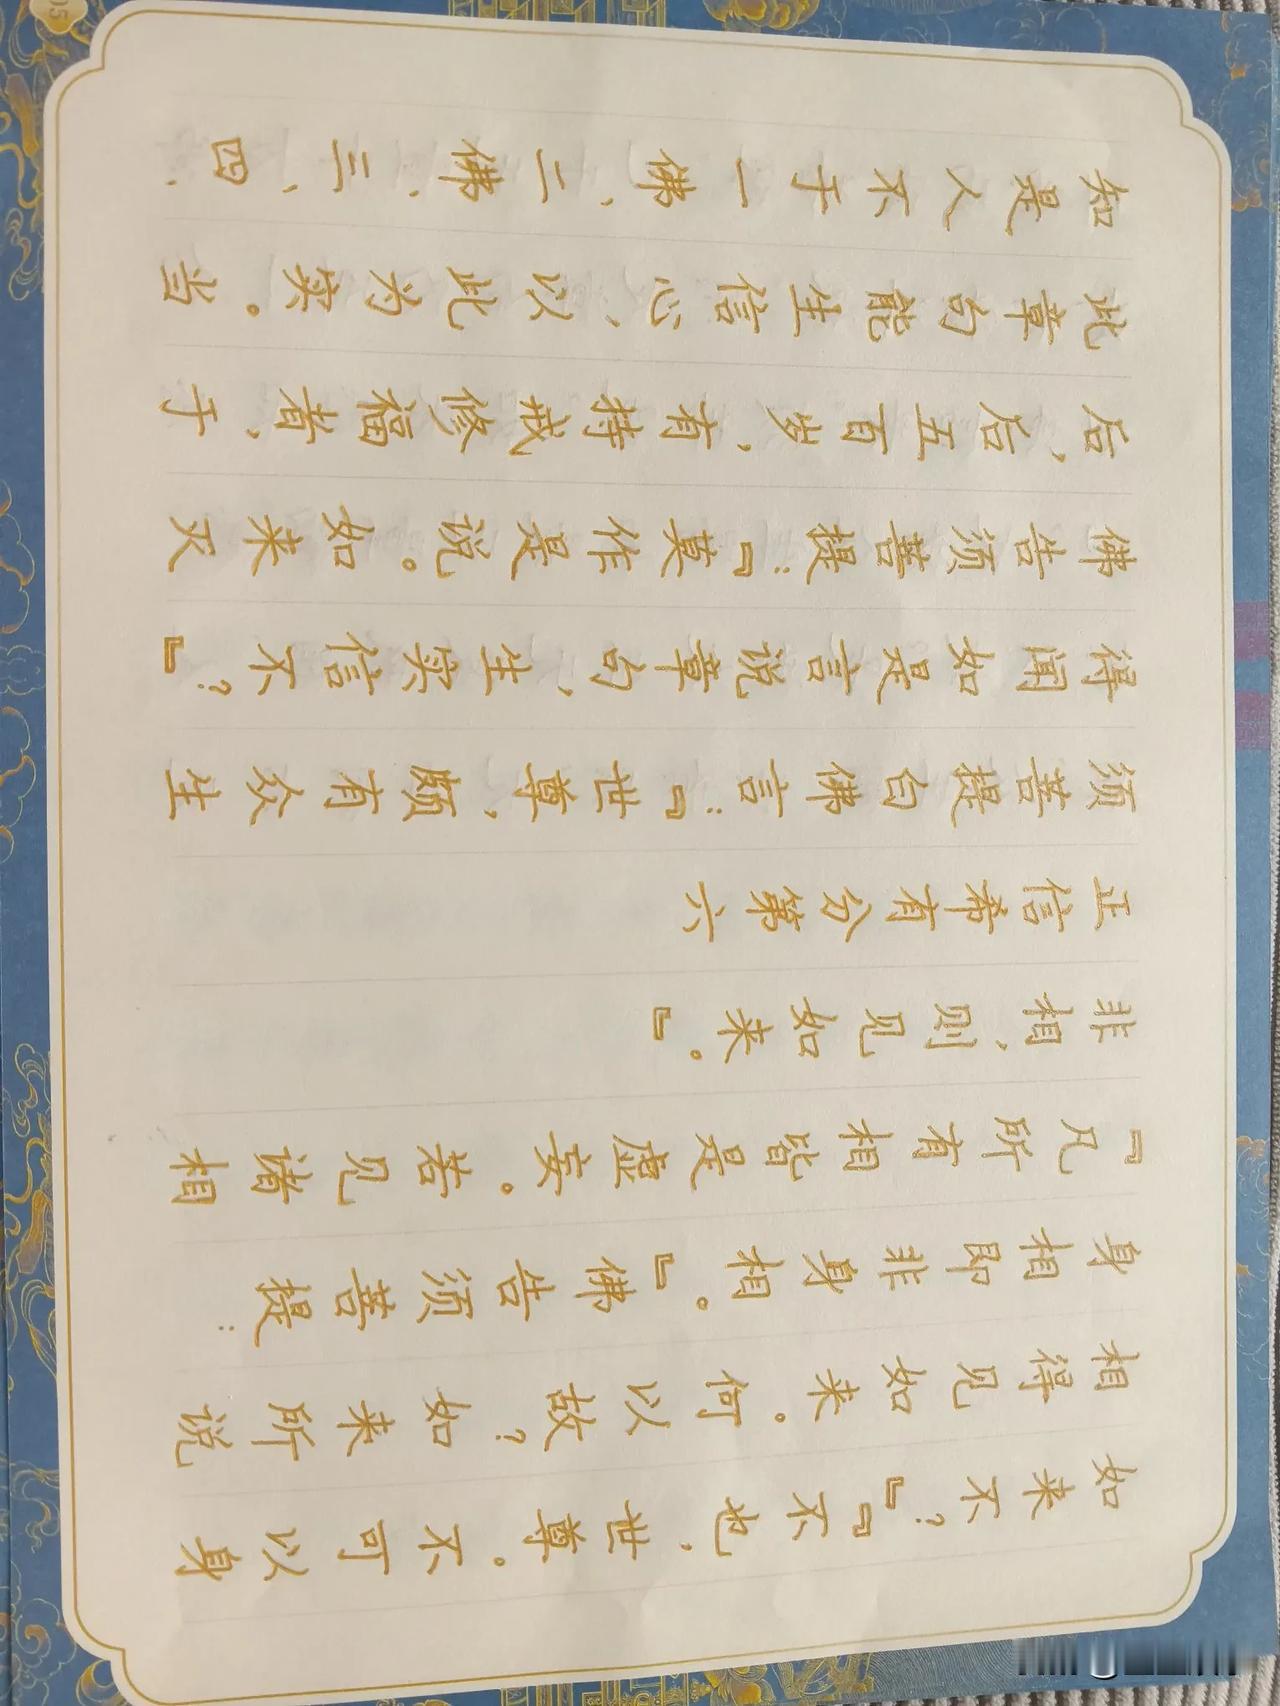 如来不？』『不也，世尊。不可以身
相得见如来。何以故？如来所说
身相即非身相。』佛告须菩提：
『凡所有相皆是虚妄。若见诸相
非相，则见如来。』
正信希有分第六
须菩提白佛言：『世尊，颇有众生
得闻如是言说章句，生实信不？』
佛告须菩提：『莫作是说。如来灭
后，后五百岁，有持戒修福者，于
此章句能生信心，以此为实。当
知是人不于一佛、二佛、三、四、
05